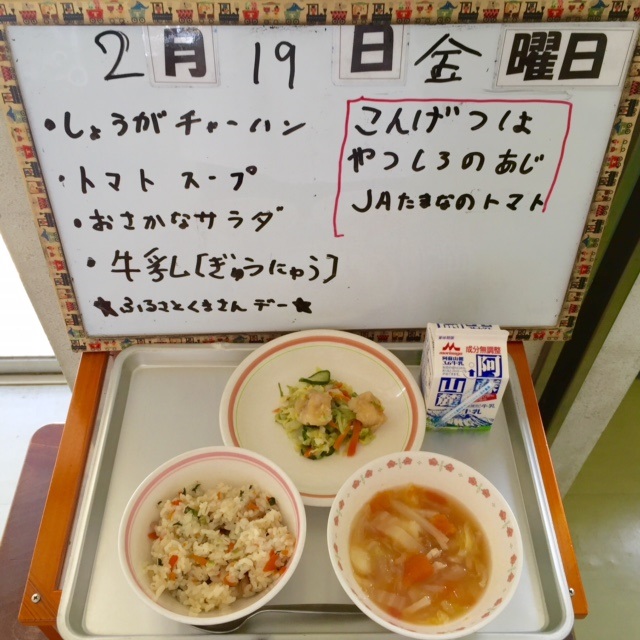 2月19日金曜日
・しょうがチャーハン
・トマトスープ
・おさかなサラダ
・牛乳[ぎゅうにゅう]
★ふるさとくまさんデー★
こんげつは
やつしろのあじ
JAたまなのトマト
成分無調整
阿蘇
山麓
牛乳